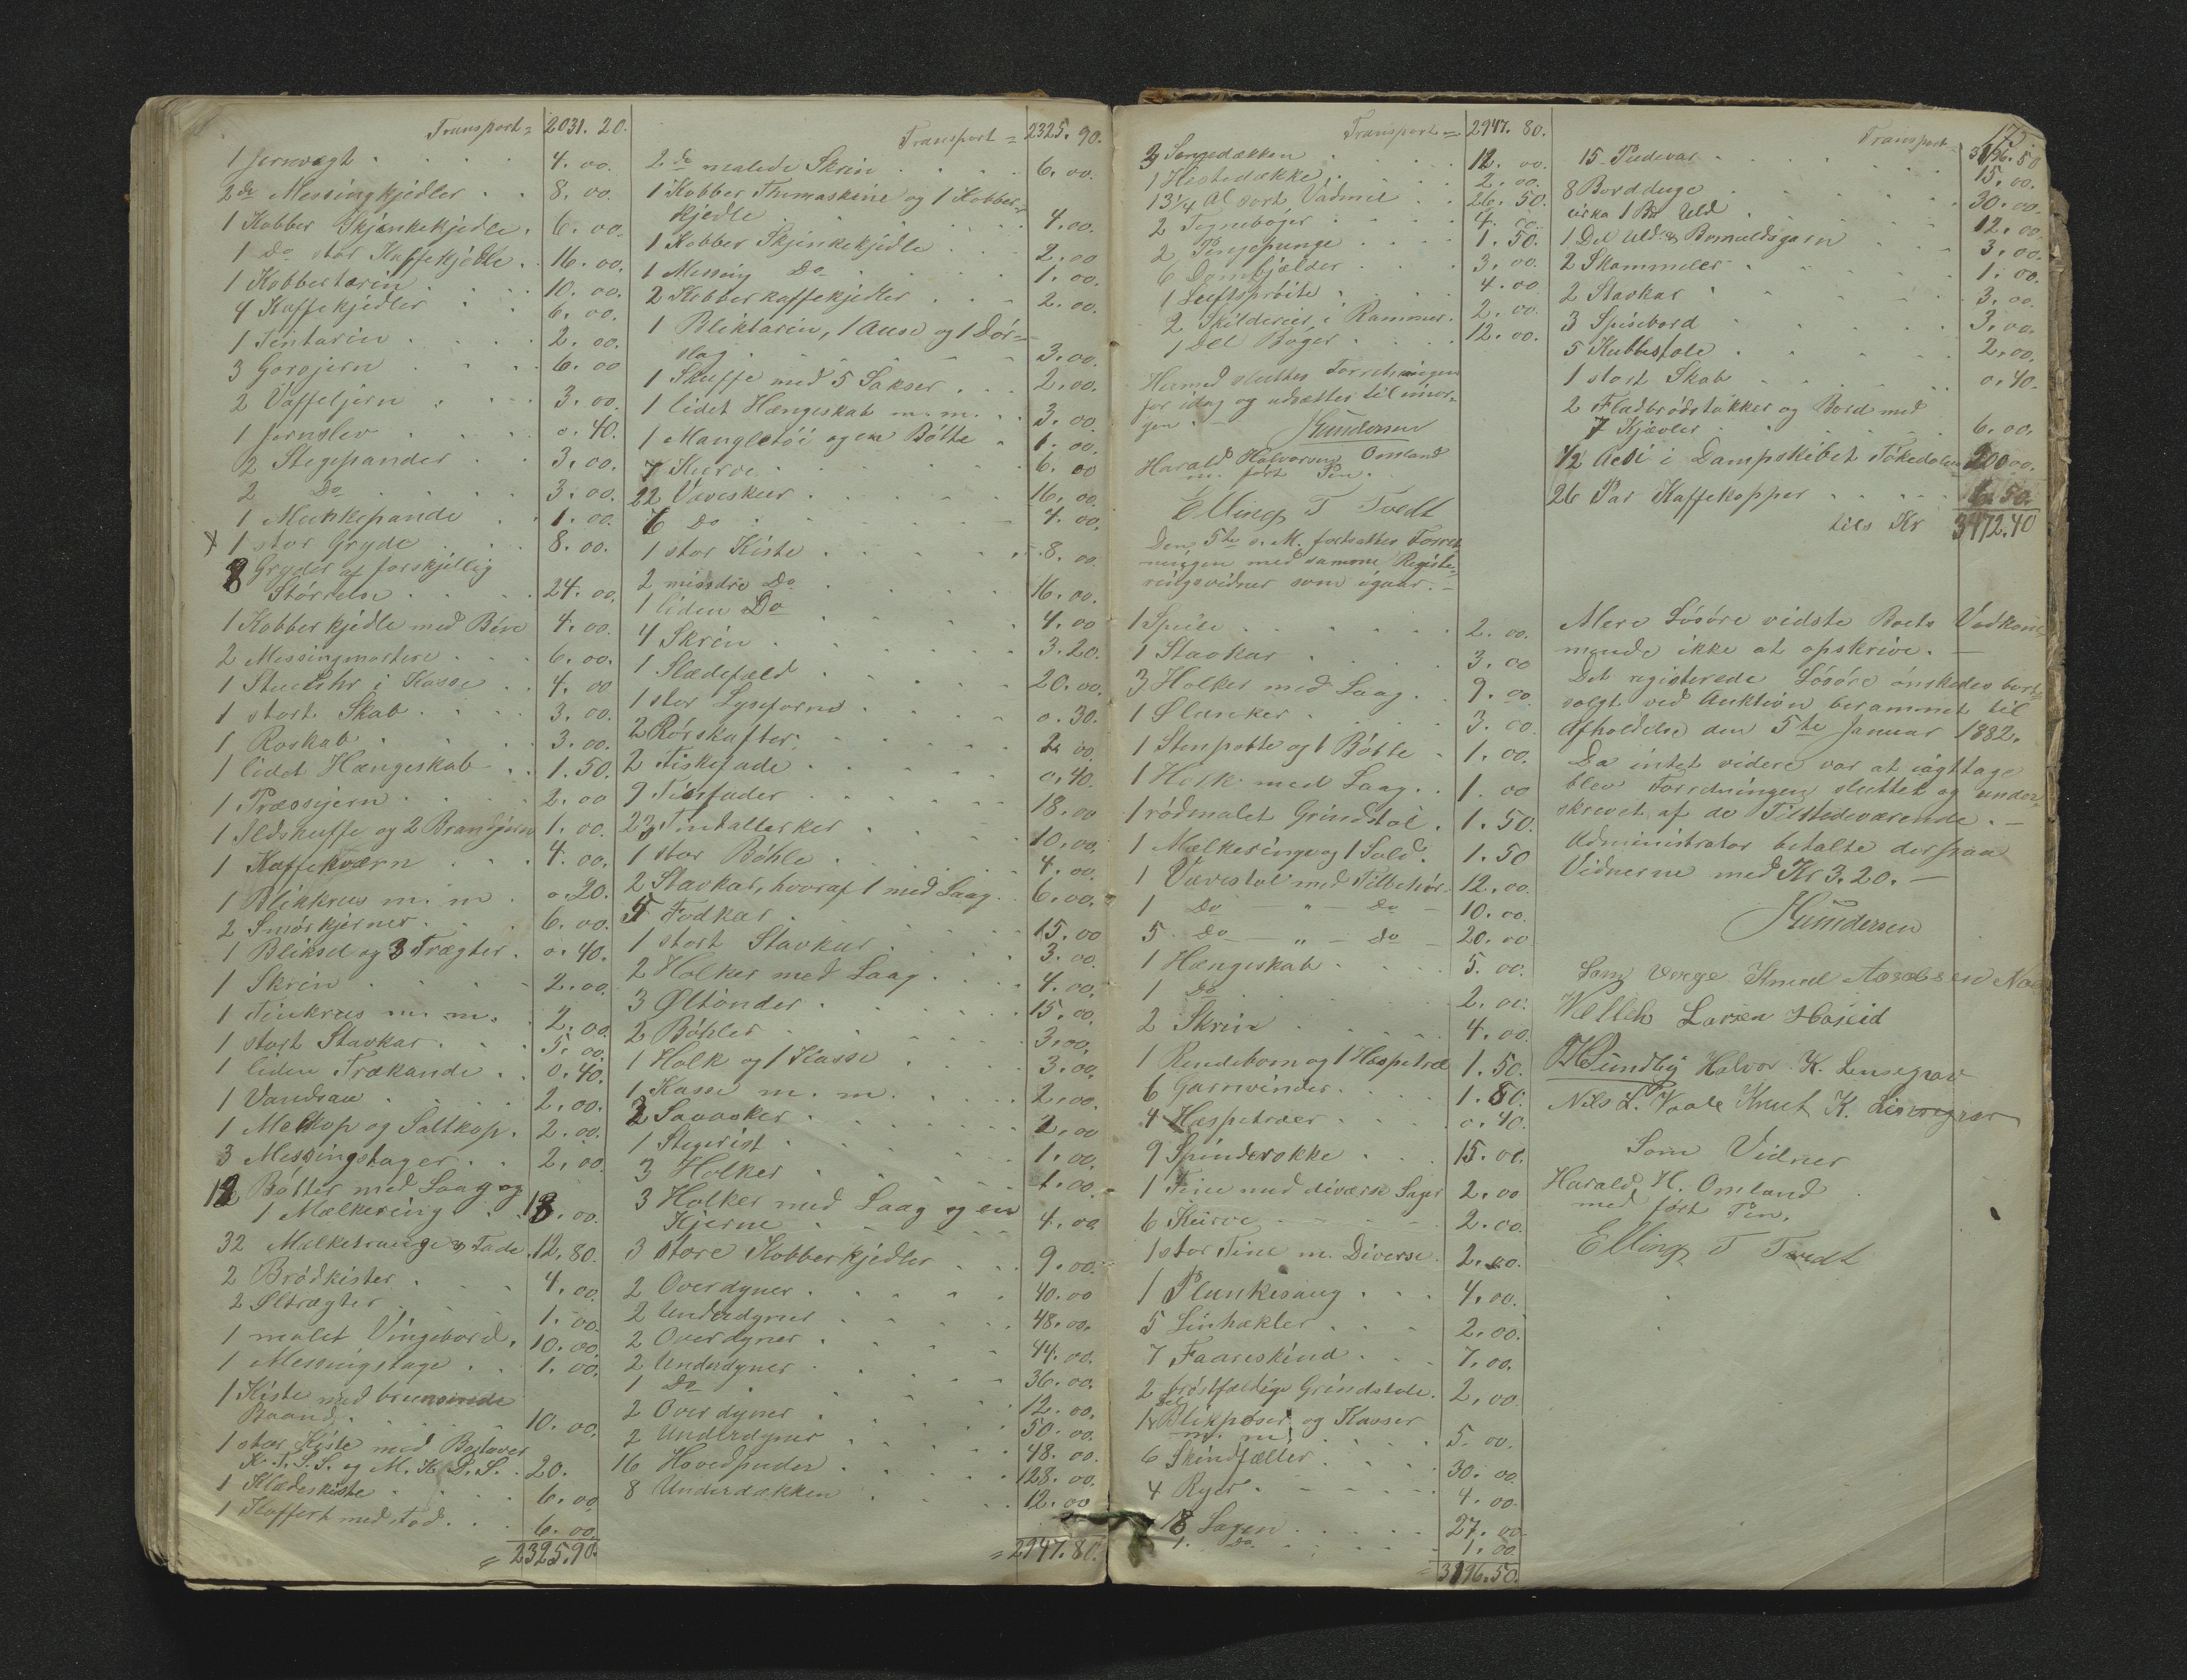 Transport = 2031. 20.
1 Jernvægt 4. 00.
2 do Messingkjedler 8. 00.
1 Kobber Skjænkekjedle 6. 00.
1 Do stor Kaffekjedle 16. 00.
1 Kobbertarin 10. 00.
4 Kaffekjedler 6. 00.
1 Tintarin 2. 00.
3 Gorojern 6. 00
2 Vaffeljern 3. 00.
1 Jernslev 0. 40.
2 Stegepander 3. 00.
2 Do 3. 00.
1 Munkepande 1. 00.
1 stor Gryde 8. 00.
8 Gryder af forskjellig
Størrelse 24. 00.
1 Kobberkjedle med Ben 4. 00.
2 Messingmortere 6. 00.
1 Stueuhr i Kasse 4. 00
1 stort Skab 3. 00.
1 Roskab 3. 00.
1 lidet Hængeskab 1. 50.
1 Præssjern 2. 00
1 Ildskuffe og 2 Brandjern 1. 00.
1 Kaffekværn 4. 00.
1 Blikkrus m. m. 0. 20.
2 Smørkjerner 6. 00.
1 og 3 Trægter 0. 40.
1 Skrin 2. 00.
1 Tinkrus m. m. 2. 00.
1 stort Stavkar 5. 00.
1 liden Trækande 0. 40.
1 Vandsaa 2. 00.
1 og Saltkop 2. 00.
3 Messingstager 2. 00.
12 Bøtter med Laag og
1 Mælkering 18. 00.
32 Melketrauge & Fade 12. 80.
2 Brødkister 4. 00.
2 Øltrægter 1. 00.
1 malet Vingebord 10. 00.
1 Messingstage 1. 00.
1 Kiste med
Baand 10. 00.
1 stor Kiste med Bogstaver
K. T. S. S. og M. K. D. S. 20.
1 Klædeskiste 6. 00
1 Koffert med Fod 6. 00.
= 2325. 90.
Transport = 2325. 90.
2 do malede Skrin 6. 00.
1 Kobber Themaskine og 1 Kobber=
kjedle 4. 00.
1 Kobber Skjænkekjedle 2. 00
1 Messing Do 1. 00.
2 Kobberkaffekjedler 2. 00.
1 Bliktarin, 1 Ause og 1 Dør=
slag 3. 00.
1 Skuffe med 5 Sakser 2. 00.
1 lidet Hængeskab m. m. 3. 00.
1 Mangletøi og en Bøtte 1. 00.
7 Kurve 6. 00
22 Væveskeer 16. 00.
6 Do 4. 00.
1 stor Kiste 8. 00.
2 mindre Do 16. 00.
1 liden Do 4. 00
4 Skrin 3. 20.
1 Slædefæld 20. 00.
1 stor Lyseform 0. 30.
2 Rørskafter 2. 00.
2 Fiskefade 0. 40.
9 Tinfader 18. 00
23 Tintallerker 10. 00.
1 stor Bøhle 4. 00.
2 Stavkar, hvoraf 1 med Laag 6. 00.
5 Fodkar 15. 00
1 stort Stavkar 3. 00.
2 Holker med Laag 4. 00.
3 Øltønder 15. 00.
2 Bøhler 3. 00.
1 Holk og 1 Kasse 3. 00.
1 Kasse m. m. 2. 00.
2. 00
1 Stegerist 1. 00.
3 Holker 1. 00.
3 Holker med Laag og en
Kjerne 4. 00
3 store Kobberkjedler 9. 00.
2 Overdyner 40. 00
2 Underdyner 48. 00.
2 Overdyner 44. 00.
2 Underdyner 36. 00.
1 Do 12. 00.
2 Overdyner 50. 00.
2 Underdyner 48. 00.
16 Hovedpuder 128. 00.
8 Underdækken 12. 00
= 2947. 80.
Transport = 2947. 80.
3 Sengedækken 12. 00.
1 Hestedække 2. 00.
13 1/4 Al sort Vadmel 26. 50.
2 Tegnebøger 4. 00.
2 Pengepunge 1. 50.
6 Dombjælder 3. 00.
1 4. 00
2 Skilderier i Rammer 2. 00.
1 Del Bøger 12. 00.
Hermed sluttes Forretningen
for idag og udsættes til imor=
gen. —
Gundersen
Harald Halvorsen Omland
m. ført Pen.
Elling T Tvedt
Den 5te s. M. fortsattes Forret=
ningen med samme Registe=
ringsvidner som igaar. —
1 Speile 2. 00.
1 Stavkar 3. 00
3 Holker med Laag 9. 00.
1 3. 00
1 Stenpotte og 1 Bøtte 1. 00.
1 Holk med Laag 1. 00
1 rødmalet Grindstol 1. 50.
1 Mælkeringe og 1 Sold 1. 50
1 Vævestol med Tilbehør 12. 00.
1 Do — " — Do 10. 00.
5 Do — " — Do 20. 00
1 Hængeskab 5. 00.
1 Do 2. 00.
2 Skrin 4. 00.
1 Rendebom og 1 Haspetræ 1. 50.
6 Garnvinder 1. 80.
4 Haspetræer 0. 40.
9 Spinderokke 15. 00.
1 Tine med diverse Sager 2. 00
6 Kurve 2. 00.
1 stor Tine m. Diverse 2. 00.
1 Plankesaug 4. 00.
5 Linhækler 2. 00.
7 Faareskind 7. 00.
2 brøstfældige Grindstole 2. 00
1 Del og Kasser
m. m. 5. 00.
6 Skindfæller 30. 00.
4 Ryer 4. 00.
18 Lagen 27. 00.
1 Do 1. 00.
= 3196. 50.
175
Transport = 3196. 50
15 Pudevar 15. 00.
8 Bordduge 30. 00.
cirka 1 Bd Uld 12. 00
1 Del Uld & Bomuldsgarn 3. 00.
2 Skammeler 1. 00
2 Stavkar 3. 00.
3 Spisebord 3. 00.
5 Kubbestole 2. 00.
1 stort Skab 0. 40.
2 Fladbrødstakker og Bord med
7 Kjævler 6. 00.
1/2 Actie i Dampskibet Tokedølen 200 00.
26 Par Kaffekopper 6. 50.
tils Kr 3472. 40
Mere Løsøre vidste Boets Vedkom=
mende ikke at opskrive. —
Det registerede Løsøre ønskedes bort=
solgt ved Auktion berammet til
Afholdelse den 5te Januar 1882.
Da intet videre var at iagttage
blev Forredningen sluttet og under=
skrevet af de Tilstedeværende. —
Administrator betalte derpaa
Vidnerne med Kr 3. 20. —
Gundersen
Som Verge Knud
Larsen Haseid
Halvor K. Lensegrav
Nils L. Vaale Knut K.
Som Vidner
Harald H. Omland
med ført Pen.
Elling T Tvedt